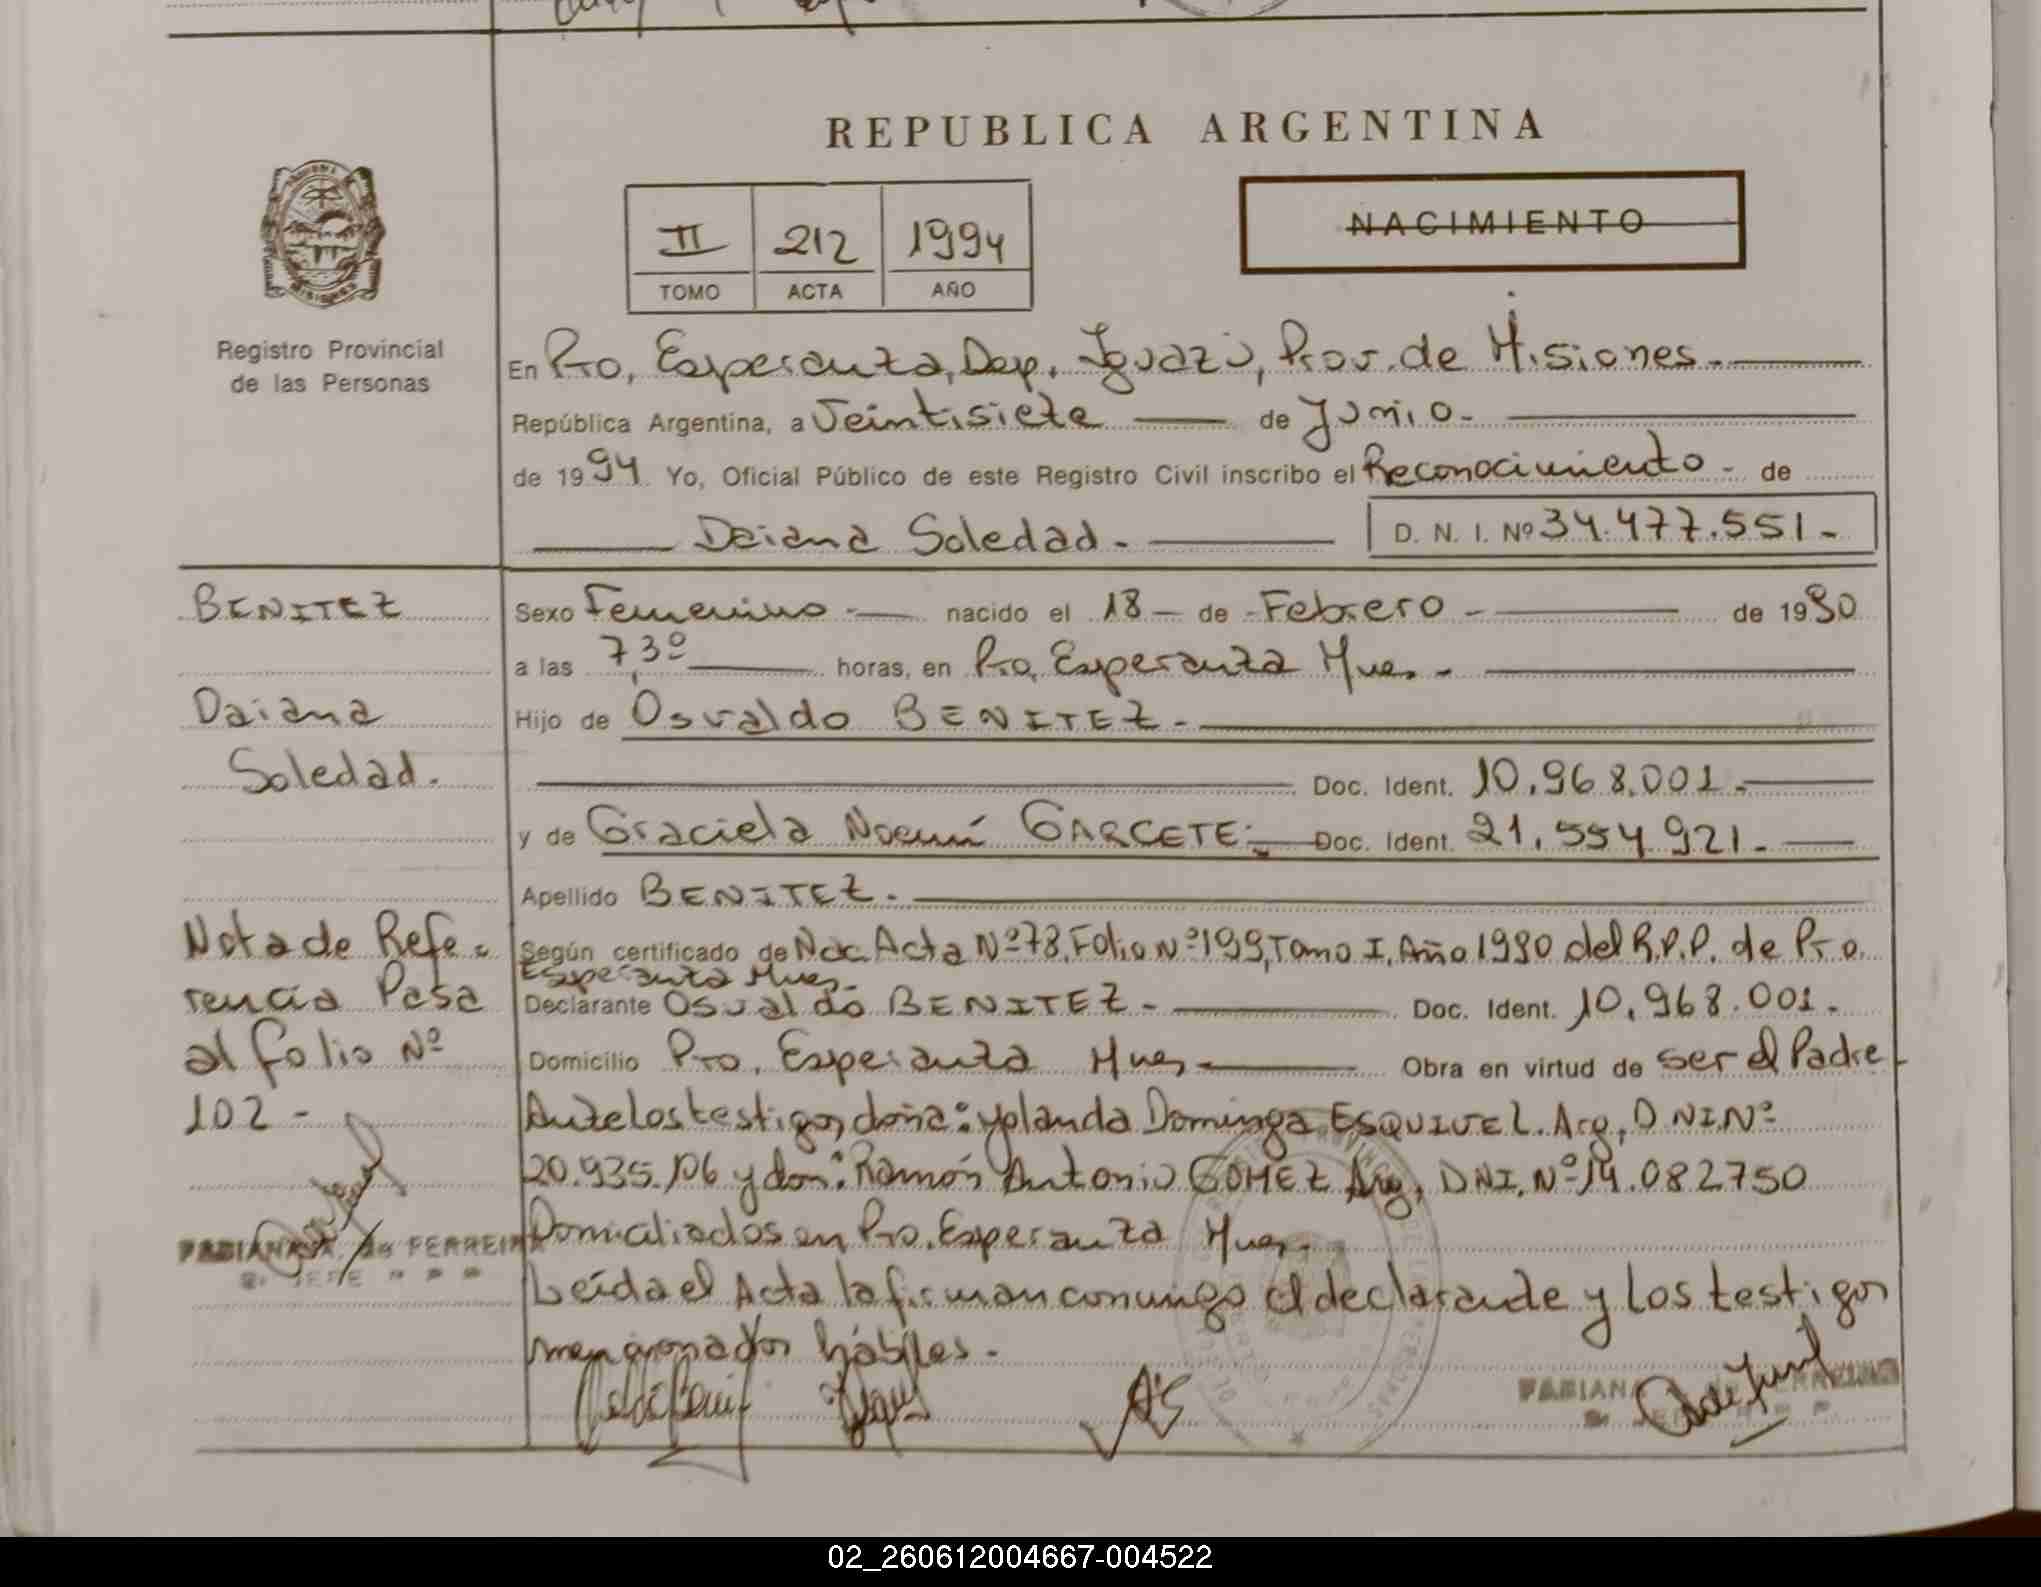 REPUBLICA ARGENTINA
II 212 1994
TOMO ACTA AÑO
NACIMIENTO
Registro Provincial
de las Personas
En Pto, Esperanza, Dep. Iguazú, Prov. de Misiones.
República Argentina, a Veintisiete de Junio.
de 1994. Yo, Oficial Público de este Registro Civil inscribo el Reconocimiento - de
Daiana Soledad. D. N. I. Nº 34.477.551.-
BENITEZ
Daiana
Soledad.
Sexo Femenino - nacido el 18 - de Febrero - de 1990
a las 7,30 horas, en Pto, Esperanza Mnes. -
Hijo de Osvaldo BENITEZ. -
Doc. Ident. 10.968.001.-
y de Graciela Noemí GARCETE.- Doc. Ident. 21.554.921.-
Apellido BENITEZ. -
Según certificado de Nac. Acta Nº 78, Folio Nº 199, Tomo I, Año 1990 del R.P.P. de Pto.
Esperanza Mnes.
Declarante Osvaldo BENITEZ - Doc. Ident. 10.968.001.
Domicilio Pto. Esperanza Mnes Obra en virtud de ser el Padre
Ante los testigos, doña: Yolanda Dominga ESQUIVEL. Arg, D.NI.Nº
20.935.106 y don: Ramón Antonio GOMEZ Arg, DNI. Nº 14.082750
Domiciliados en Pto. Esperanza Mnes.
Leída el Acta la firman conmigo el declarante y los testigos
mencionados hábiles.
Nota de Refe-
rencia Pasa
al folio Nº
102 -
FABIANA de FERREIRA
JEFE
FABIANA
02_260612004667-004522